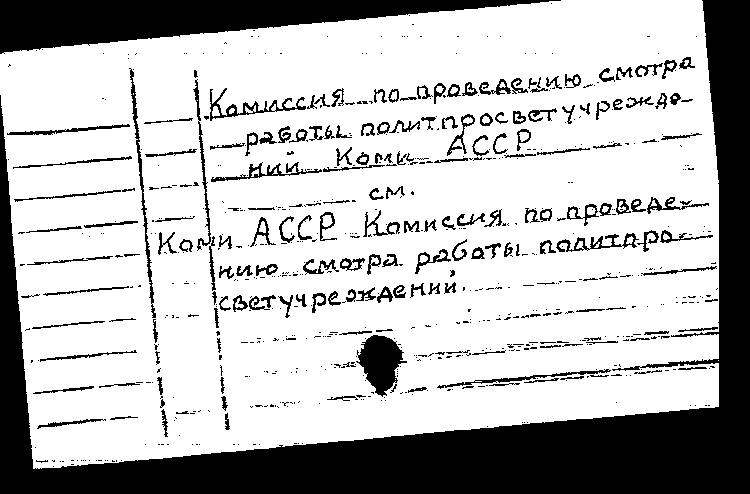 Комиссия по проведению смотра
работы политпросветучрежде-
ний Коми АССР
см.
Коми АССР Комиссия по проведе-
нию смотра работы политпро-
светучреждений.